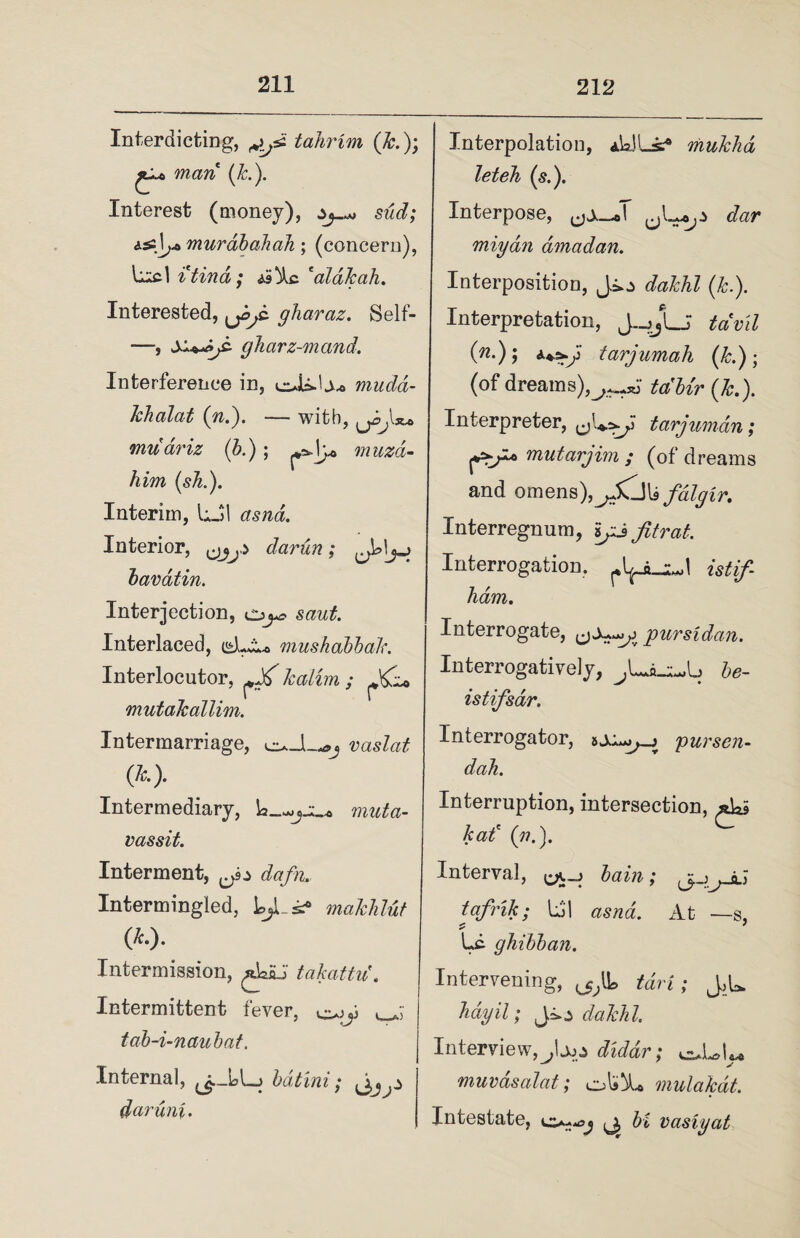 211
Interdicting, تحریم tahrim (k.);
منع manʿ (k.).
Interest (money), سود súd;
مرابحه murábahah ; (concern),
اعتنا iʿtiná ; علاقه ʿalákah.
Interested, غرض gharaz. Self-
—, غرضمند gharz-mand.
Interference in, مداخلت mudá-
khalat (n.). — with, معارض
muʿáriz (b.) ; مزاحم muzá-
him (sh.).
Interim, اثنا asná.
Interior, درون darún ; بواطن
bavátin.
Interjection, صوت saut.
Interlaced, مشبک mushabbak.
Interlocutor, کلیم kalím ; متکلم
mutakallim.
Intermarriage, وصلت vaslat
(k.).
Intermediary, متوسط muta-
vassit.
Interment, دفن dafn.
Intermingled, مخلوط makhlút
(k.).
Intermission, تقطع takattuʿ.
Intermittent fever, تب نوبت
tab-i-naubat.
Internal, باطنی bátiní ; درونی
daruní.
212
Interpolation, مخالطه mukhá
leteh (s.).
Interpose, در میان آمدن dar
miyán ámadan.
Interposition, دخل dakhl (k.).
Interpretation, تأویل taʾvíl
(n.) ; ترجمه tarjumah (k.) ;
(of dreams), تعبیر taʿbír (k.).
Interpreter, ترجمان tarjumán ;
مترجم mutarjim ; (of dreams
and omens), فالگیر fálgír.
Interregnum, فترة fitrat.
Interrogation, استفهام istif-
hám.
Interrogate, پرسیدن pursídan.
Interrogatively, باستفسار be-
istifsár.
Interrogator, پرسنده pursen-
dah.
Interruption, intersection, قطع
katʿ (n.).
Interval, بین bain ; تفریق
tafrík ; اثنا asná. At —s,
غبا ghibban.
Intervening, طاری tárí ; حایل
háyil ; دخل dakhl.
Interview, دیدار dídár ; مواصلت
muvásalat ; ملاقات mulakát.
Intestate, بی وصیت bí vasiyat